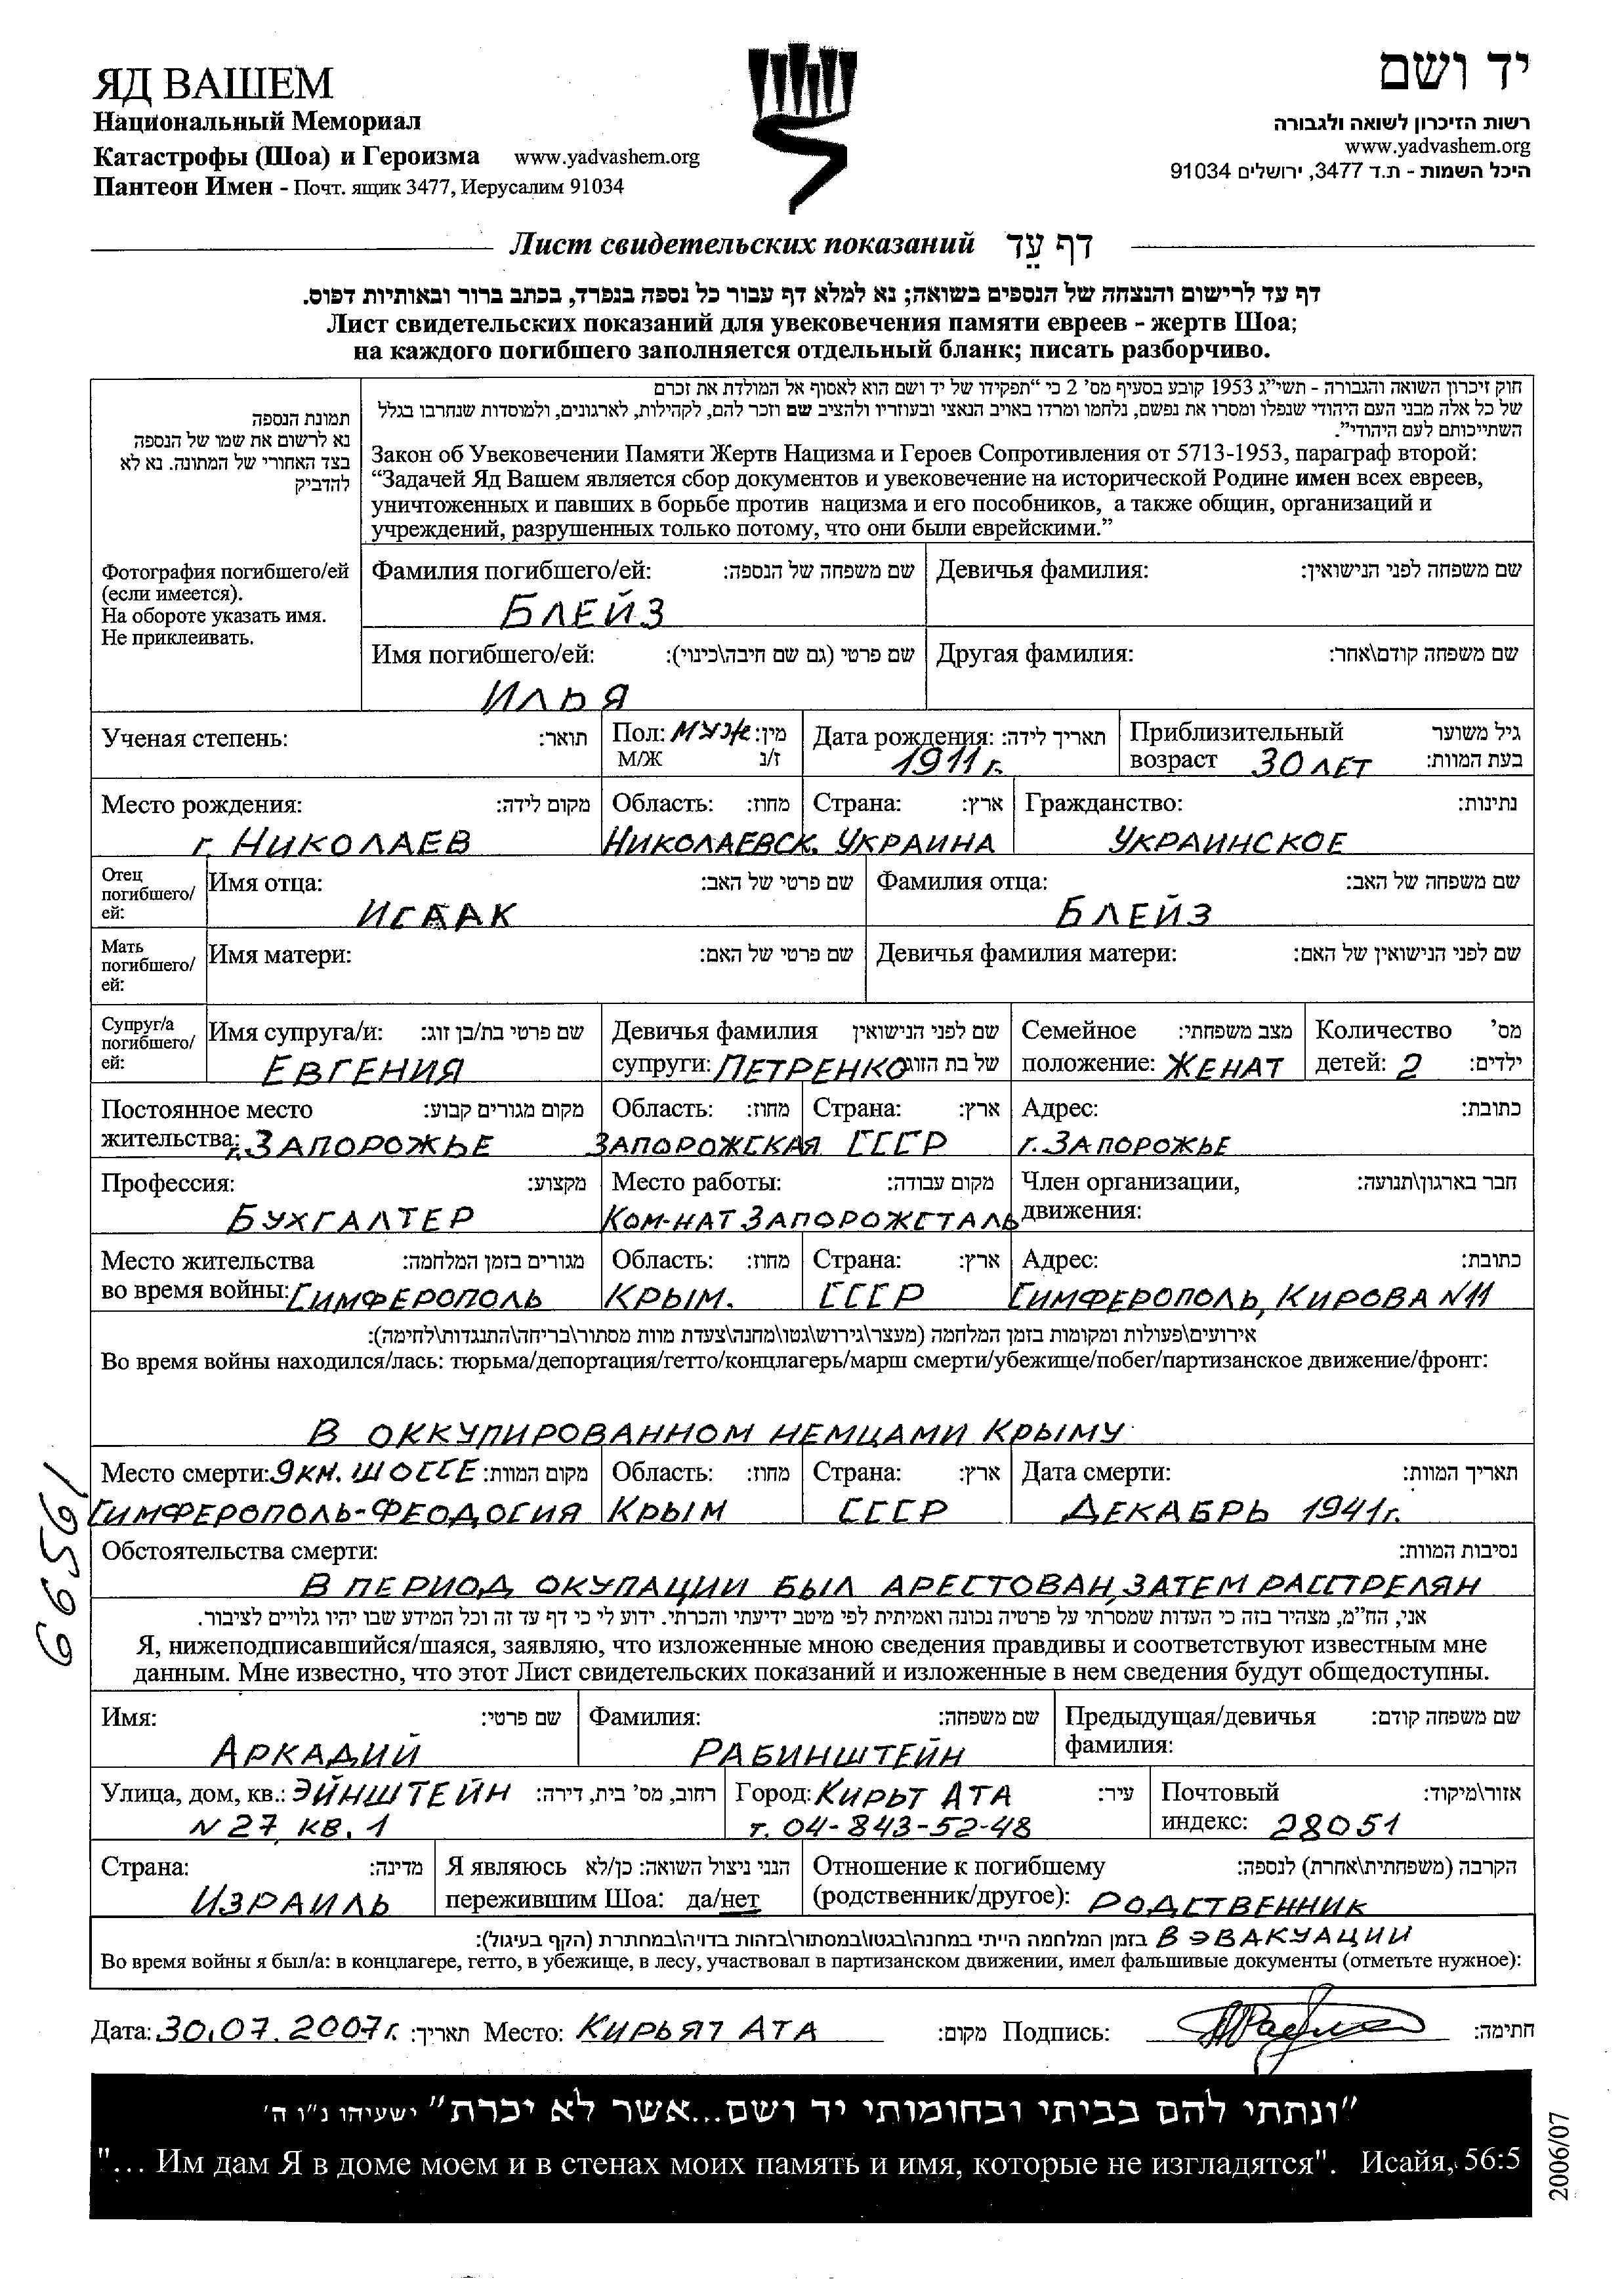 ЯД ВАШЕМ
Национальный Мемориал
Катастрофы (Шоа) и Героизма www.yadvashem.org
Пантеон Имен - Почт. ящик 3477, Иерусалим 91034
יד ושם
רשות הזיכרון לשואה ולגבורה
www.yadvashem.org
היכל השמות - ת.ד 3477, ירושלים 91034
Лист свидетельских показаний דף עֵד
דף עד לרישום והנצחה של הנספים בשואה; נא למלא דף עבור כל נספה בנפרד, בכתב ברור ובאותיות דפוס.
Лист свидетельских показаний для увековечения памяти евреев - жертв Шоа;
на каждого погибшего заполняется отдельный бланк; писать разборчиво.
תמונת הנספה
נא לרשום את שמו של הנספה
בצד האחורי של המתונה. נא לא
להדביק
חוק זיכרון השואה והגבורה - תשי"ג 1953 קובע בסעיף מס' 2 כי "תפקידו של יד ושם הוא לאסוף אל המולדת את זכרם
של כל אלה מבני העם היהודי שנפלו ומסרו את נפשם, נלחמו ומרדו באויב הנאצי ובעוזריו ולהציב שם וזכר להם, לקהילות, לארגונים, ולמוסדות שנחרבו בגלל
השתייכותם לעם היהודי".
Закон об Увековечении Памяти Жертв Нацизма и Героев Сопротивления от 5713-1953, параграф второй:
"Задачей Яд Вашем является сбор документов и увековечение на исторической Родине имен всех евреев,
уничтоженных и павших в борьбе против нацизма и его пособников, а также общин, организаций и
учреждений, разрушенных только потому, что они были еврейскими."
Фотография погибшего/ей
(если имеется).
На обороте указать имя.
Не приклеивать.
Фамилия погибшего/ей: שם משפחה של הנספה: Девичья фамилия: שם משפחה לפני הנישואין:
БЛЕЙЗ
Имя погибшего/ей: שם פרטי (גם שם חיבה\כינוי): Другая фамилия: שם משפחה קודם\אחר:
ИЛЬЯ
Ученая степень: תואר: Пол: МУЖ מין: Дата рождения: תאריך לידה: Приблизительный גיל משוער
М/Ж ז/נ 1911 г. возраст 30 ЛЕТ בעת המוות:
Место рождения: מקום לידה: Область: מחוז: Страна: ארץ: Гражданство: נתינות:
г. НИКОЛАЕВ НИКОЛАЕВСК. УКРАИНА УКРАИНСКОЕ
Отец
погибшего/
ей:
Имя отца: שם פרטי של האב: Фамилия отца: שם משפחה של האב:
ИСААК БЛЕЙЗ
Мать
погибшего/
ей:
Имя матери: שם פרטי של האם: Девичья фамилия матери: שם לפני הנישואין של האם:
Супруг/а
погибшего/
ей:
Имя супруга/и: שם פרטי בת/בן זוג: Девичья фамилия שם לפני הנישואין Семейное מצב משפחתי: Количество מס'
ЕВГЕНИЯ супруги: ПЕТРЕНКО של בת הזוג: положение: ЖЕНАТ детей: 2 ילדים:
Постоянное место מקום מגורים קבוע: Область: מחוז: Страна: ארץ: Адрес: כתובת:
жительства: г. ЗАПОРОЖЬЕ ЗАПОРОЖСКАЯ СССР г. ЗАПОРОЖЬЕ
Профессия: מקצוע: Место работы: מקום עבודה: Член организации, חבר בארגון\תנועה:
БУХГАЛТЕР КОМ-НАТ ЗАПОРОЖСТАЛЬ движения:
Место жительства מגורים בזמן המלחמה: Область: מחוז: Страна: ארץ: Адрес: כתובת:
во время войны: СИМФЕРОПОЛЬ КРЫМ. СССР СИМФЕРОПОЛЬ, КИРОВА N11
אירועים\פעולות ומקומות בזמן המלחמה (מעצר\גירוש\גטו\מחנה\צעדת מוות מסתור\בריחה\התנגדות\לחימה):
Во время войны находился/лась: тюрьма/депортация/гетто/концлагерь/марш смерти/убежище/побег/партизанское движение/фронт:
В ОККУПИРОВАННОМ НЕМЦАМИ КРЫМУ
Место смерти: 9КМ. ШОССЕ מקום המוות: Область: מחוז: Страна: ארץ: Дата смерти: תאריך המוות:
СИМФЕРОПОЛЬ-ФЕОДОСИЯ КРЫМ СССР ДЕКАБРЬ 1941г.
Обстоятельства смерти: נסיבות המוות:
В ПЕРИОД ОКУПАЦИИ БЫЛ АРЕСТОВАН, ЗАТЕМ РАССТРЕЛЯН
אני, הח"מ, מצהיר בזה כי העדות שמסרתי על פרטיה נכונה ואמיתית לפי מיטב ידיעתי והכרתי. ידוע לי כי דף עד זה וכל המידע שבו יהיו גלויים לציבור.
Я, нижеподписавшийся/шаяся, заявляю, что изложенные мною сведения правдивы и соответствуют известным мне
данным. Мне известно, что этот Лист свидетельских показаний и изложенные в нем сведения будут общедоступны.
Имя: שם פרטי: Фамилия: שם משפחה: Предыдущая/девичья שם משפחה קודם:
АРКАДИЙ РАБИНШТЕЙН фамилия:
Улица, дом, кв.: ЭЙНШТЕЙН רחוב, מס' בית, דירה: Город: КИРЬТ АТА עיר: Почтовый אזור\מיקוד:
N 27, КВ. 1 т. 04-843-52-48 индекс: 28051
Страна: מדינה: Я являюсь הנני ניצול השואה: כן/לא Отношение к погибшему הקרבה (משפחתית\אחרת) לנספה:
ИЗРАИЛЬ пережившим Шоа: да/нет (родственник/другое): РОДСТВЕННИК
בזמן המלחמה הייתי במחנה\בגטו\במסתור\בזהות בדויה\במחתרת (הקף בעיגול): В ЭВАКУАЦИИ
Во время войны я был/а: в концлагере, гетто, в убежище, в лесу, участвовал в партизанском движении, имел фальшивые документы (отметьте нужное):
Дата: 30.07.2007г. תאריך: Место: КИРЬЯТ АТА מקום: Подпись: חתימה:
"ונתתי להם בביתי ובחומותי יד ושם...אשר לא יכרת" ישעיהו נ"ו ה'
"... Им дам Я в доме моем и в стенах моих память и имя, которые не изгладятся". Исайя, 56:5
2006/07